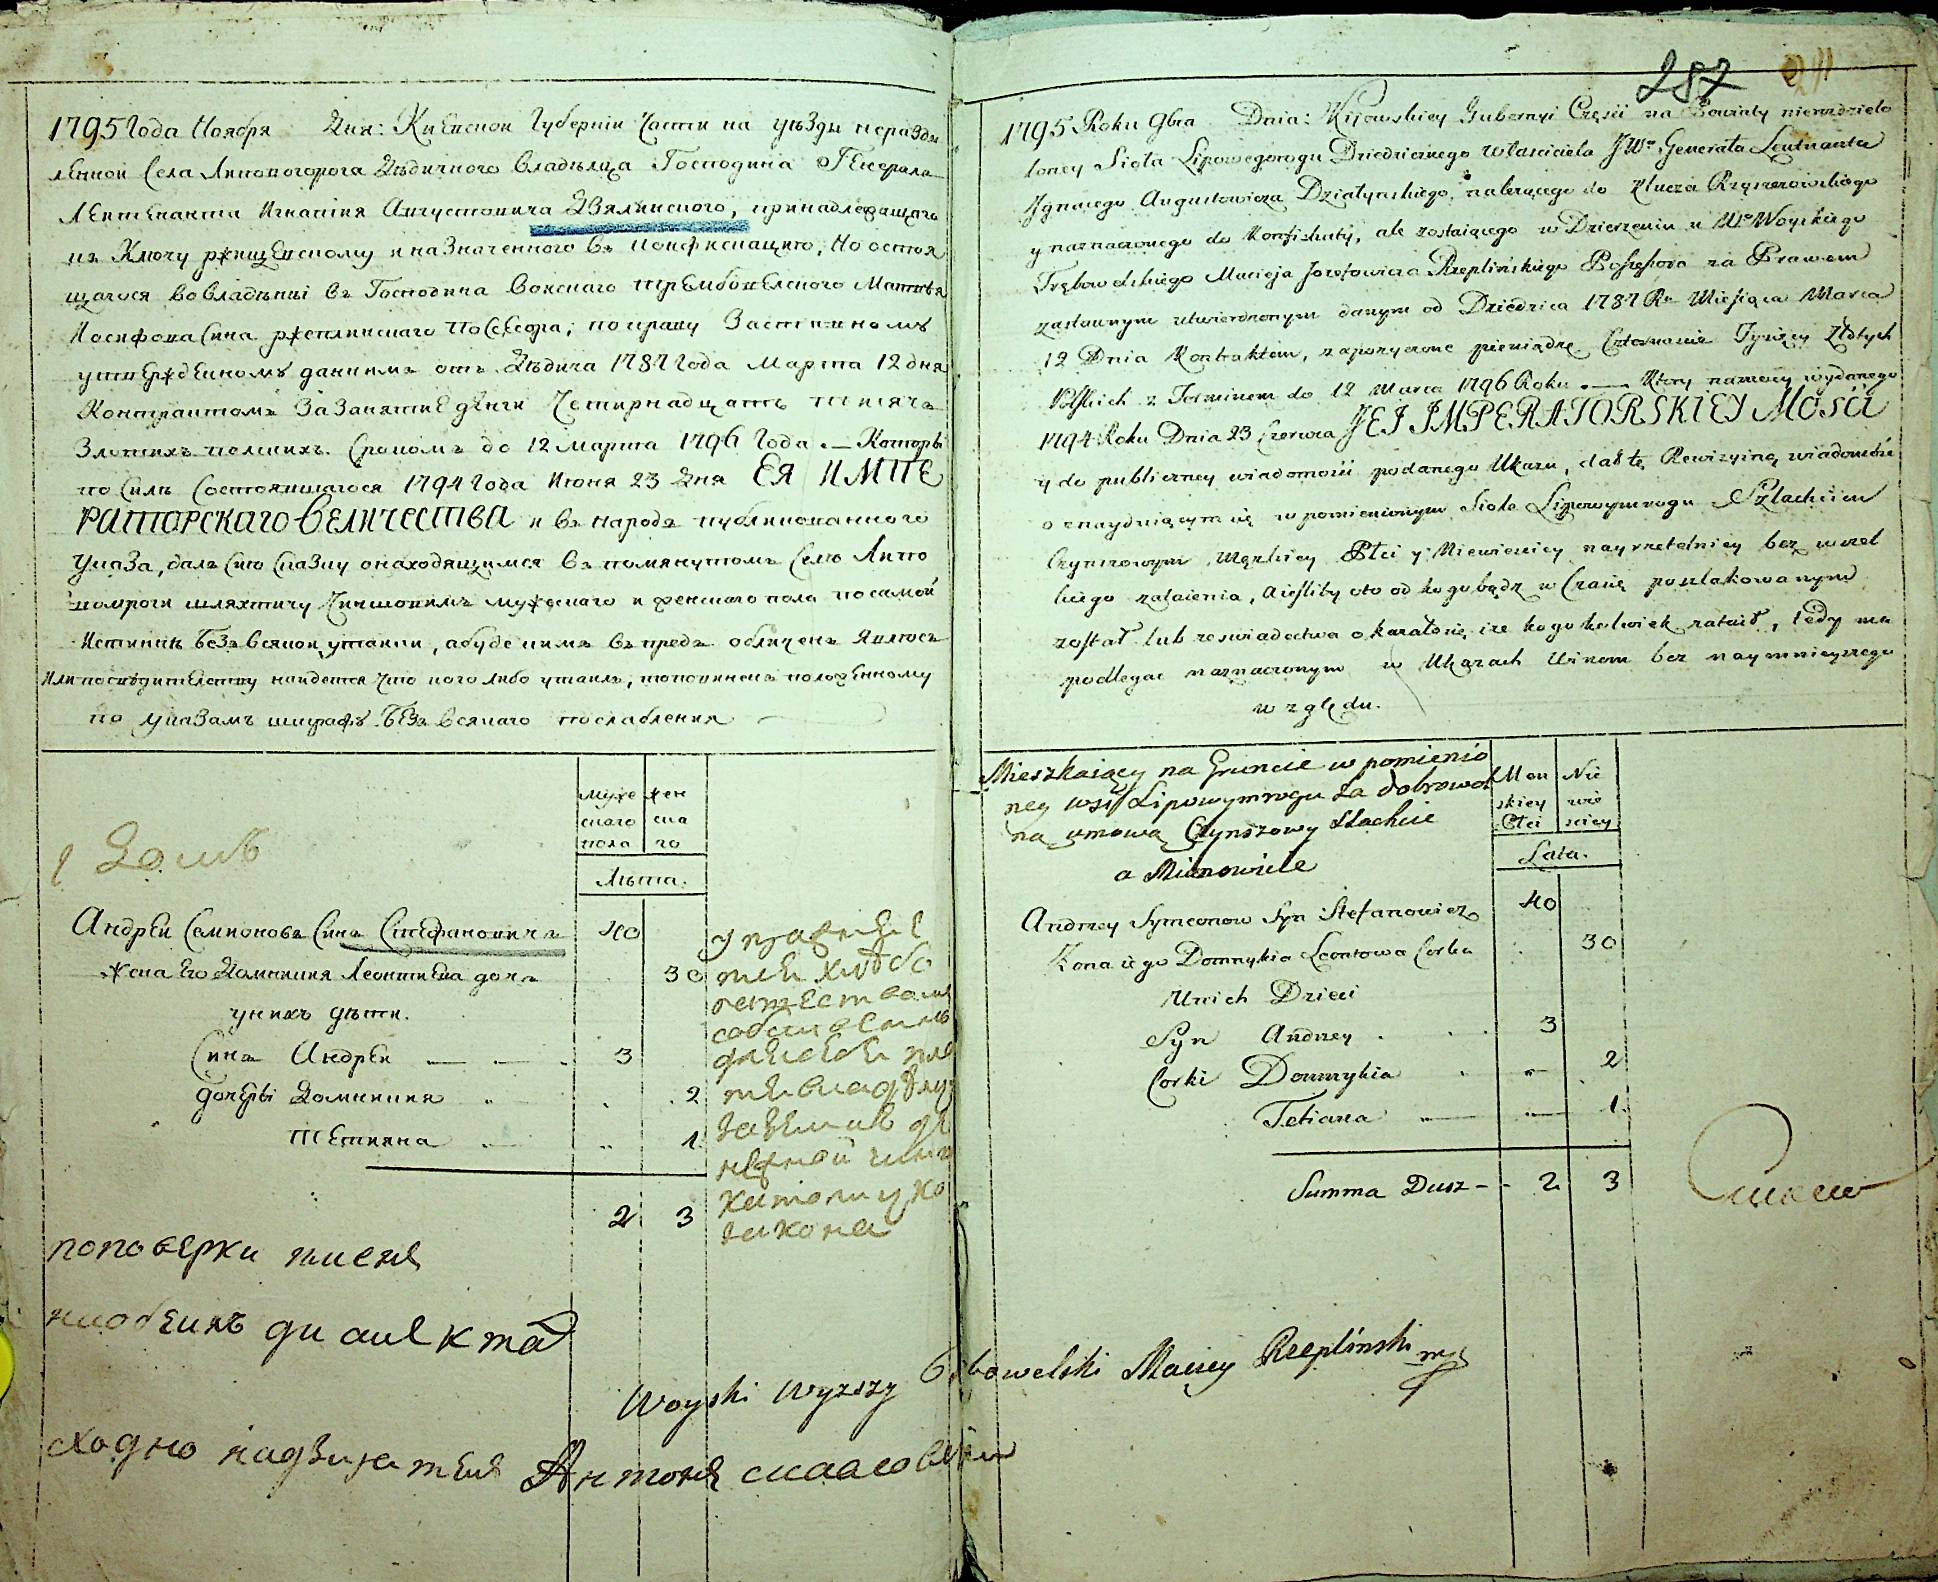 287
1795 Года Ноября Дня: Киевской Губернiи Части на уѣзды неразды
ленной Села Липовогорога Дѣдичного Владѣльца Господина Генерала
Лейтенанта Игнатiя Августовича Дзялинского, принадлежащаго
къ Ключу ржищевскому и назначенного въ конфискацию, Но остоя
щагося во владѣнiи въ Господина Войскаго Трембовелского Маттвея
Иосифова Сина ржеплинскаго Посесора, по праву Заставному
утвержденному данимъ отъ Дѣдича 1787 Года Марта 12 дня
Контрактомъ За Занятие денги Четирнадцать тисячъ
Злотихъ полскихъ. Срокомъ до 12 марта 1796 Года .— Которы
по Силѣ Состоявшагося 1794 Года Июня 23 Дня ЕЯ ИМПЕ
РАТОРСКАГО ВЕЛИЧЕСТВА и въ народъ публикованного
Указа, далъ Сию Сказку онаходящимся въ помянутомъ Селѣ Липо
вомроги шляхтичу Чиншовимъ мужескаго и женскаго пола посамой
Истиннѣ безъ всякой утайки, абуде кимъ въпредь обличенъ явлюсъ
Или посвидителству найдется что кого либо утаилъ, топовиненъ положенному
по указамъ штрафу безъ всякаго послабления
муже
скаго
пола
жен
ска
го
Лѣта.
1 Домъ
Андрей Семионовъ Синъ Стефановичъ 40
жена Его Домникия Леонтиева дочъ 30
унихъ дѣти.
Синъ Андрей 3
дочери Домникия 2
Тетияна 1
2 3
католицко
закона
поповерки
сходно
Антонъ
1795 Roku 9bra Dnia: Kijowskiey Gubernyi Części na Powiaty nierozdzielo
loney Sioła Lipowegorogu Dziedzicznego Własciciela JWo Generała Leutnanta
Ignacego Augustowicza Działynskiego, należącego do Klucza Rzyszczowskiego
y naznaczonego do Konfiskaty, ale zostaiącego w Dzierzeniu u Wo Woyskiego
Trębowelskiego Macieja Jozefowicza Rzeplińskiego Possessora za Prawem
zastawnym utwierdzonym danym od Dziedzica 1787 Ru Miesiąca Marca
12 Dnia Kontraktem, zapożyczone pieniądze Czternaście Tysięcy Złotych
Polskich z Terminem do 12 Marca 1796 Roku .— Ktory namocy wydanego
1794 Roku Dnia 23 Czerwca JEJ IMPERATORSKIEY MOSCI
y do publiczney wiadomości podanego Ukazu, dał tę Rewizyiną wiadomość
o znayduiącym się w pomienionym Siole Lipowymrogu Szlachcicu
Czynszowym Męzkiey Płci y Niewieściey nayrzetelniey bez wszel
kiego zataienia, a ieśliby kto od kogobądz w Czasie poszlakowanym
został lub ze swiadectwa okazałosię ize kogo kolwiek zataił, tedy ma
podlegac naznaczonym w Ukazach Winom bez naymnieyszego
względu.
Mieszkaiący na Gruncie w pomienio
ney wsi Lipowymrogu za dobrowol
ną umową Czynszowy Szlachcic
a Mianowicie
Męn
skiey
Płci
Nie
wie
sciey
Lata.
Andrzey Symeonow Syn Stefanowicz 40
Zona iego Domnykia Leontowa Corka 30
Unich Dzieci
Syn Andrzey 3
Corki Domnykia 2
Tetiana 1
Summa Dusz - - 2 3
Woyski Wyzszy Trębowelski Maciey Rzepliński mp